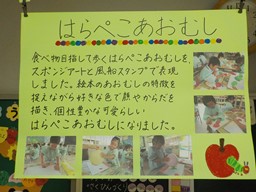 はらぺこあおむし
食べ物目指して歩くはらぺこあおむしを、
スポンジアートと風船スタンプで表現
しました。絵本のあおむしの特徴を
捉えながら好きな色で顔やからだを
描き、個性豊かな可愛らしい
はらぺこあおむしになりました。